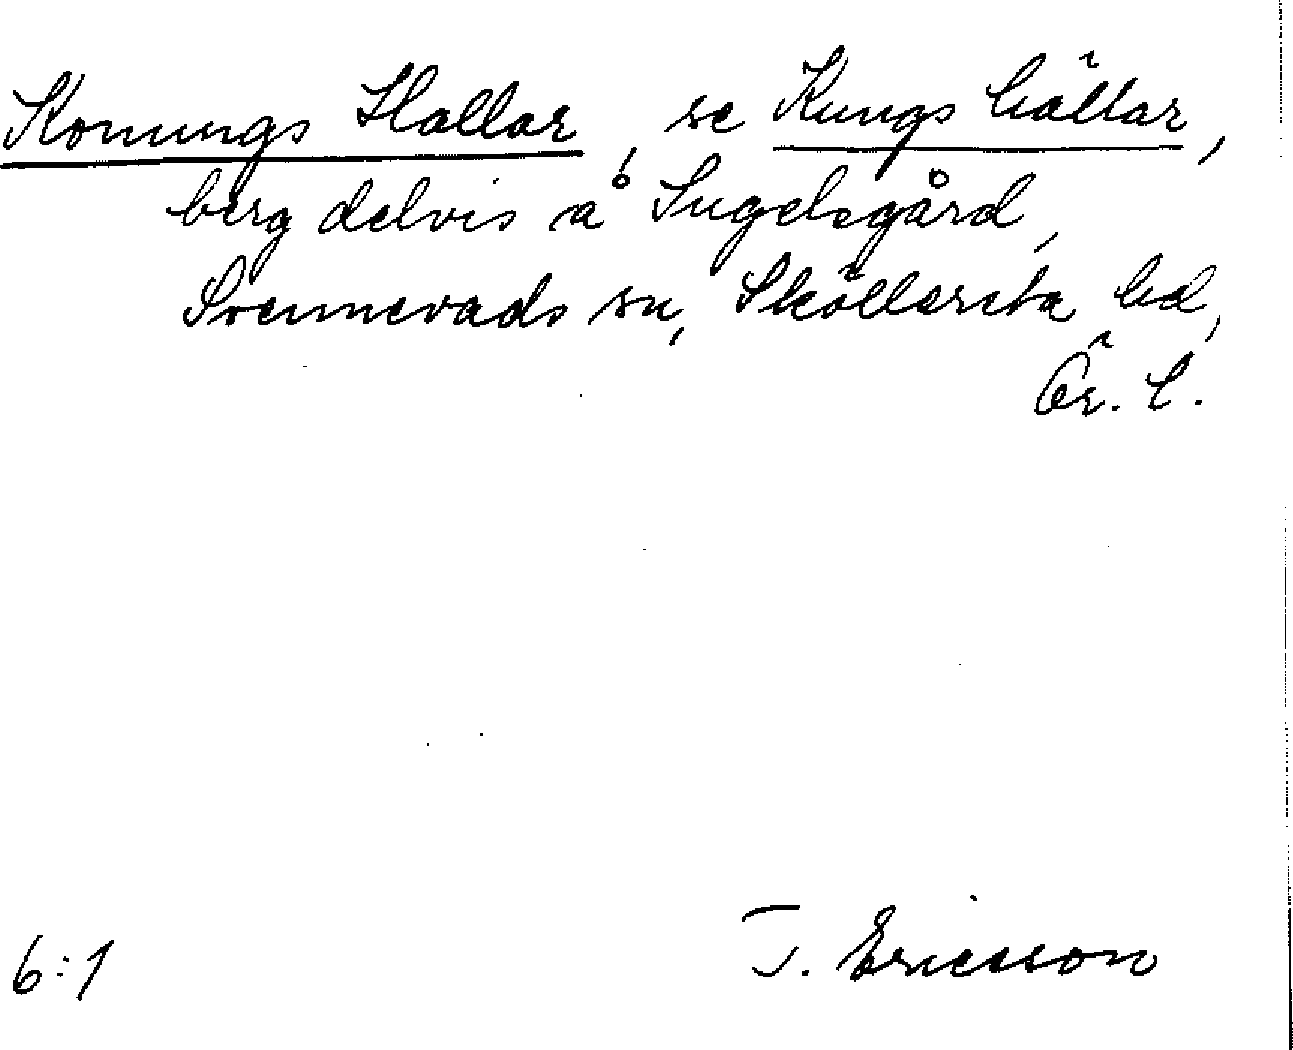 Konungs Hallar, se Kungs hällar,
berg delvis å Ingelsgård,
Svennevads sn, Sköllersta hd,
Ör. l.
6:1
T. Ericsson